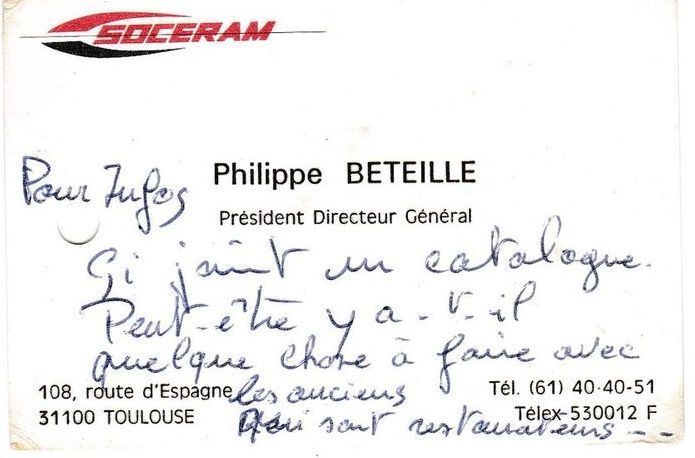 SOCERAM
Pour Infos
Philippe BETEILLE
Président Directeur Général
Ci joint un catalogue.
Peut-être y a-t-il
quelque chose à faire avec
108, route d'Espagne
les anciens
Tél. (61) 40-40-51
31100 TOULOUSE
qui sont restaurateurs --
Télex-530012 F